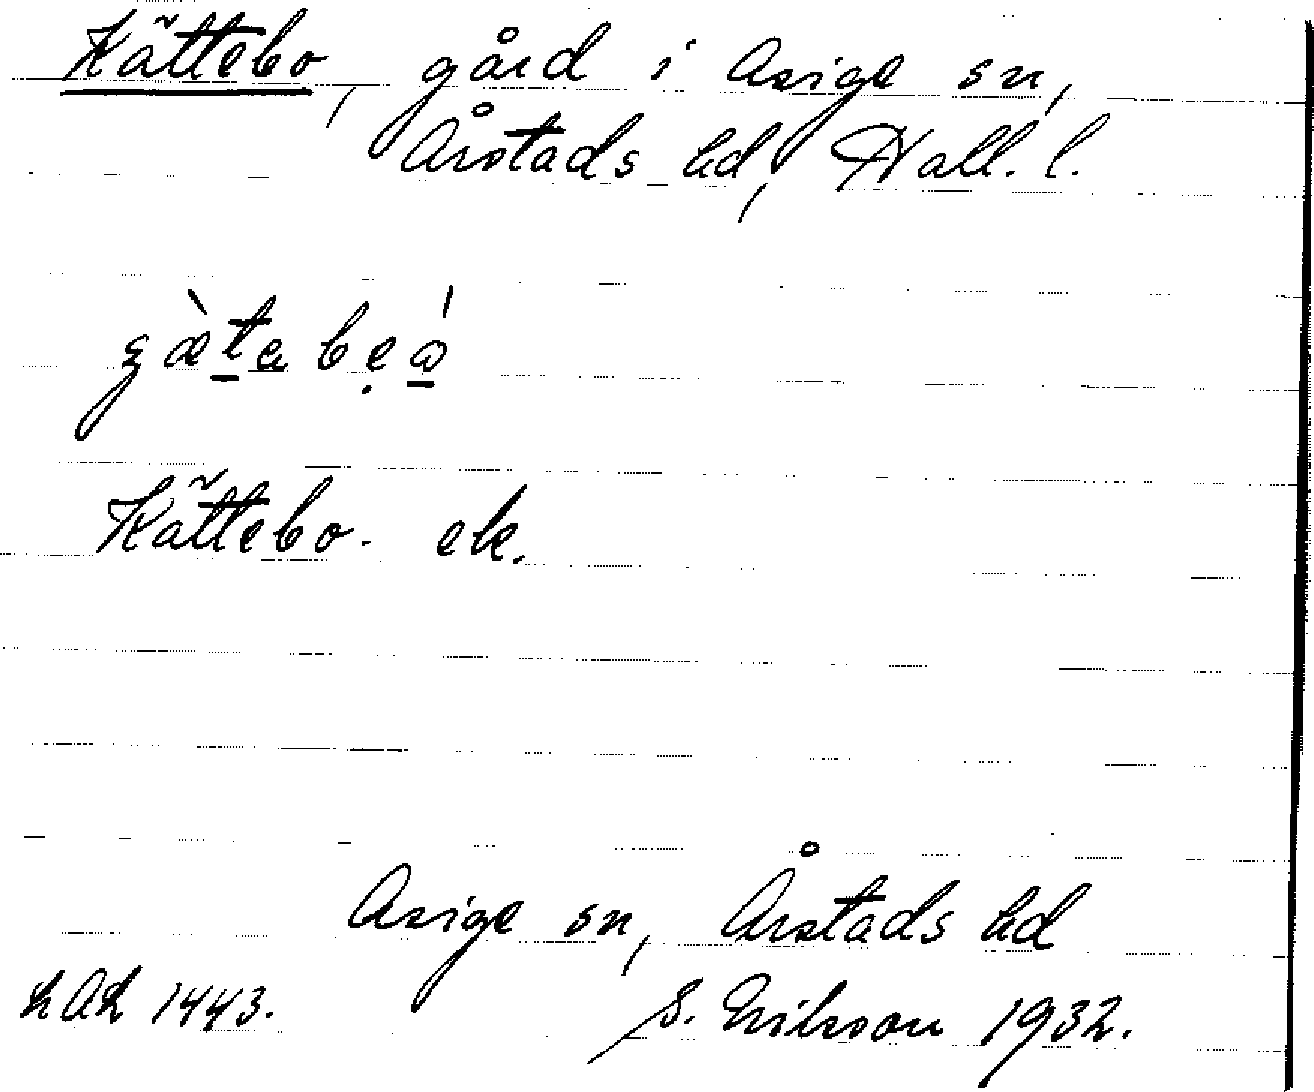 Kättebo, gård i Asige sn,
Årstads hd, Hall. l.
Kättebo. ek.
Asige sn, Årstads hd
LAL 1443. S. Eriksson 1932.